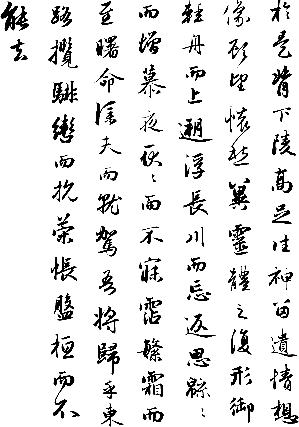 於是背下陵高足往神留遺情想
像顧望懷愁冀靈體之復形御
輕舟而上遡浮長川而忘返思緜〻
而增慕夜耿〻而不寐霑繁霜而
至曙命僕夫而就駕吾將歸乎東
路攬騑轡而抗策悵盤桓而不
能去